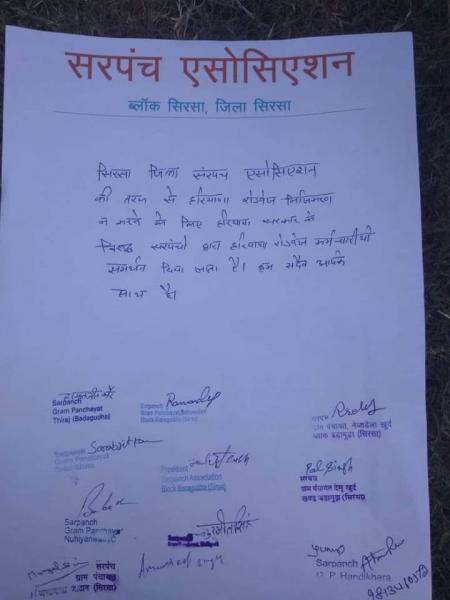 सरपंच एसोसिएशन
ब्लॉक सिरसा, जिला सिरसा
सिरसा जिला संरपंच एसोसिएशन
की तरफ से हरियाणा रोडवेज निजिकरण
न करने के लिए हरियाणा सरकार के
विरुद्ध सरपंचो द्वारा हरियाणा रोडवेज कर्मचारीयों
समर्थन दिया जाता है। हम सदैव आपके
साथ है।
Sarpanch
Gram Panchayat
Thiraj (Badagudha)
Ramandeep
Sarpanch
Gram Panchayat
Block Baragudha (Sirsa)
सरपंच
ग्राम पंचायत, नेजाडेला खुर्द
ब्लॉक बड़ागुढ़ा (सिरसा)
Sarabjit
Gram Panchayat
President
Sarpanch Association
Block Baragudha (Sirsa)
Pal Singh
सरपंच
ग्राम पंचायत देसू खुर्द
खण्ड बड़ागुढ़ा (सिरसा)
Sarpanch
Gram Panchayat
ग्राम पंचायत
(सिरसा)
Singh
Sarpanch
G. P. Handikhera